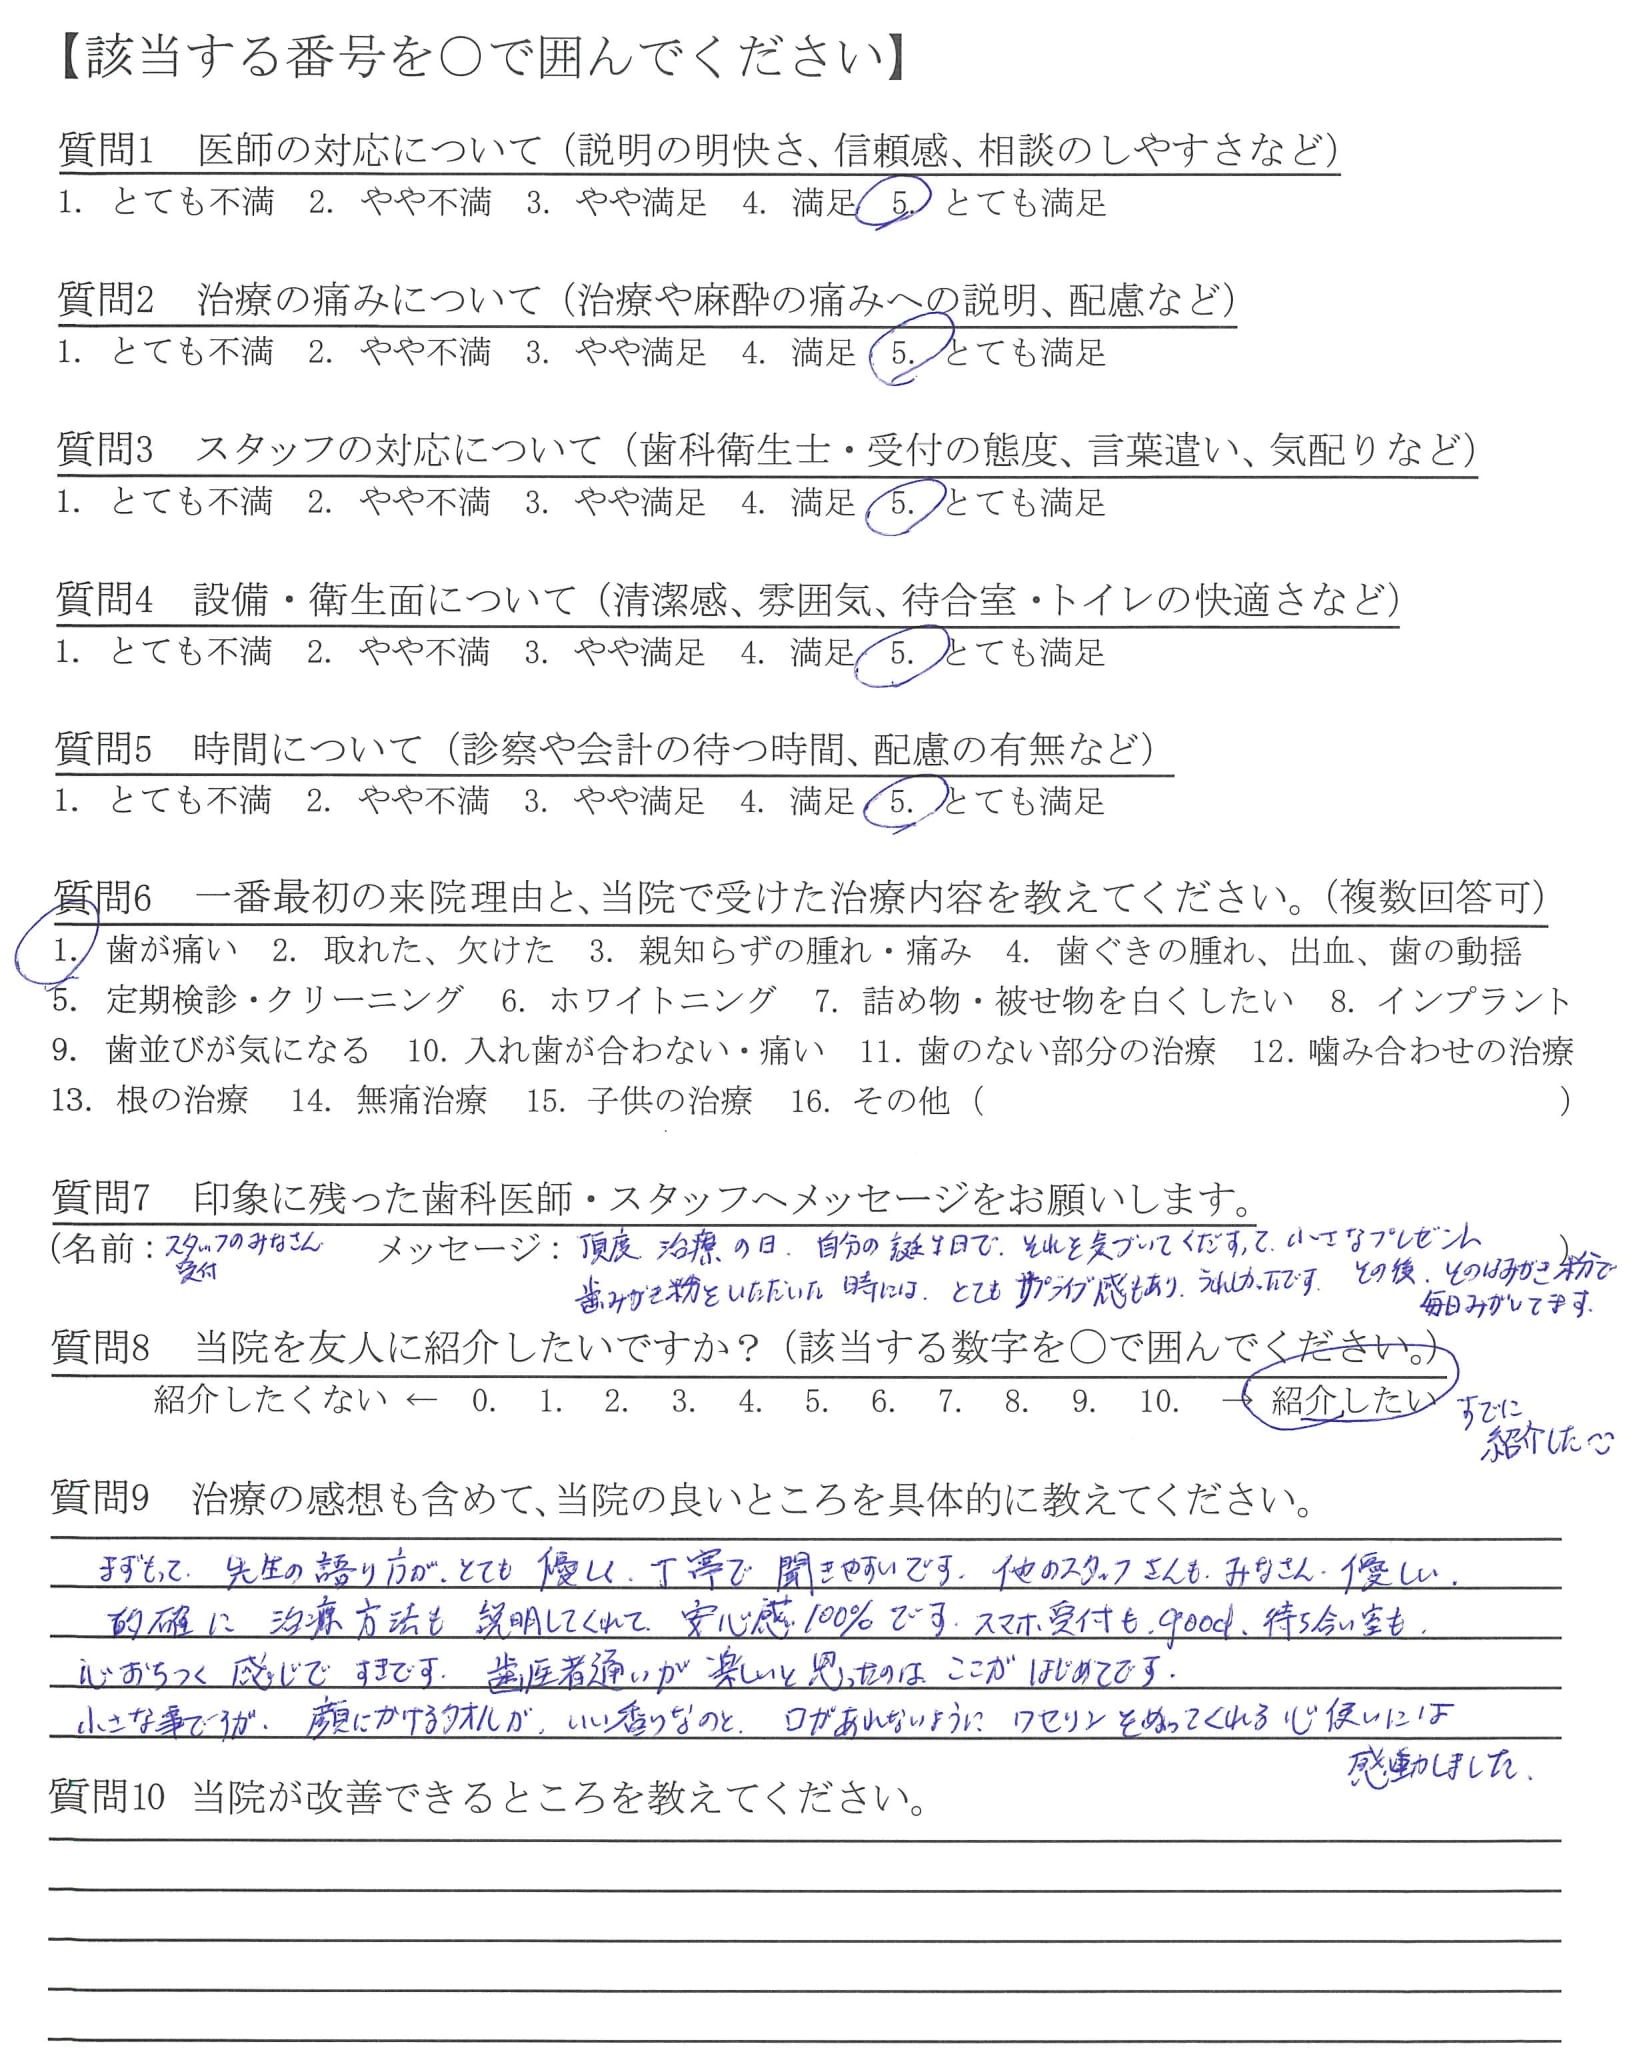 【該当する番号を〇で囲んでください】
質問1　医師の対応について（説明の明快さ、信頼感、相談のしやすさなど）
1. とても不満　2. やや不満　3. やや満足　4. 満足　5. とても満足
質問2　治療の痛みについて（治療や麻酔の痛みへの説明、配慮など）
1. とても不満　2. やや不満　3. やや満足　4. 満足　5. とても満足
質問3　スタッフの対応について（歯科衛生士・受付の態度、言葉遣い、気配りなど）
1. とても不満　2. やや不満　3. やや満足　4. 満足　5. とても満足
質問4　設備・衛生面について（清潔感、雰囲気、待合室・トイレの快適さなど）
1. とても不満　2. やや不満　3. やや満足　4. 満足　5. とても満足
質問5　時間について（診察や会計の待つ時間、配慮の有無など）
1. とても不満　2. やや不満　3. やや満足　4. 満足　5. とても満足
質問6　一番最初の来院理由と、当院で受けた治療内容を教えてください。（複数回答可）
1. 歯が痛い　2. 取れた、欠けた　3. 親知らずの腫れ・痛み　4. 歯ぐきの腫れ、出血、歯の動揺
5. 定期検診・クリーニング　6. ホワイトニング　7. 詰め物・被せ物を白くしたい　8. インプラント
9. 歯並びが気になる　10. 入れ歯が合わない・痛い　11. 歯のない部分の治療　12. 噛み合わせの治療
13. 根の治療　14. 無痛治療　15. 子供の治療　16. その他（　　　）
質問7　印象に残った歯科医師・スタッフへメッセージをお願いします。
（名前：スタッフのみなさん　メッセージ：頂度 治療の日、自分の誕生日で、それを気づいてくださって、小さなプレゼント）
受付　歯みがき粉をいただいた時には、とても サプライズ感もあり、うれしかったです。その後、そのはみがき粉で
毎日みがいてます。
質問8　当院を友人に紹介したいですか？（該当する数字を〇で囲んでください。）
紹介したくない ← 0. 1. 2. 3. 4. 5. 6. 7. 8. 9. 10. → 紹介したい　すでに
紹介した
質問9　治療の感想も含めて、当院の良いところを具体的に教えてください。
まずもって、先生の語り方が、とても 優しく、丁寧で 聞きやすいです。他のスタッフさんも、みなさん、優しい。
的確に 治療方法も 説明してくれて、安心感100％です。スマホ受付も、good、待ち合い室も、
心おちつく感じで すきです。歯医者通いが 楽しいと思ったのは、ここが はじめてです。
小さな事ですが、顔にかけるタオルが、いい香りなのと、口があれないように ワセリンをぬってくれる心使いには
感動しました。
質問10　当院が改善できるところを教えてください。